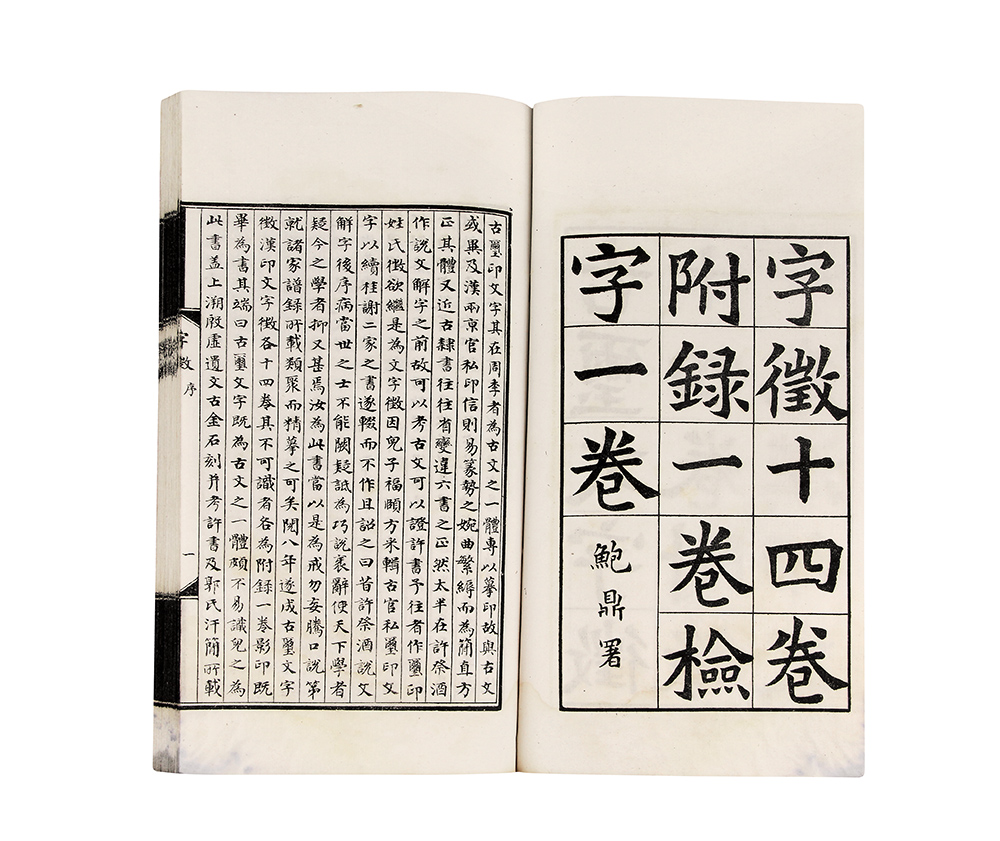 字徵十四卷
附錄一卷檢
字一卷
鮑鼎署
古璽印文字其在周季者為古文之一體專以摹印故與古文
或異及漢兩京官私印信則易篆勢之婉曲繁縟而為簡直方
正其體又近古隸書往往省變違六書之正然太半在許祭酒
作說文解字之前故可以考古文可以證許書予往者作璽印
姓氏徵欲繼是為文字徵因兒子福頤方采輯古官私璽印文
字以續桂謝二家之書遂輟而不作且詔之曰昔許祭酒說文
解字後序病當世之士不能闕疑詆為巧說衺辭使天下學者
疑今之學者抑又甚焉汝為此書當以是為戒勿妄騰口說第
就諸家譜錄所載類聚而精摹之可矣閱八年遂成古璽文字
徵漢印文字徵各十四卷其不可識者各為附錄一卷影印既
畢為書其端曰古璽文字既為古文之一體頗不易識兒之為
此書蓋上溯殷虛遺文古金石刻并考許書及郭氏汗簡所載
字徵 序
一